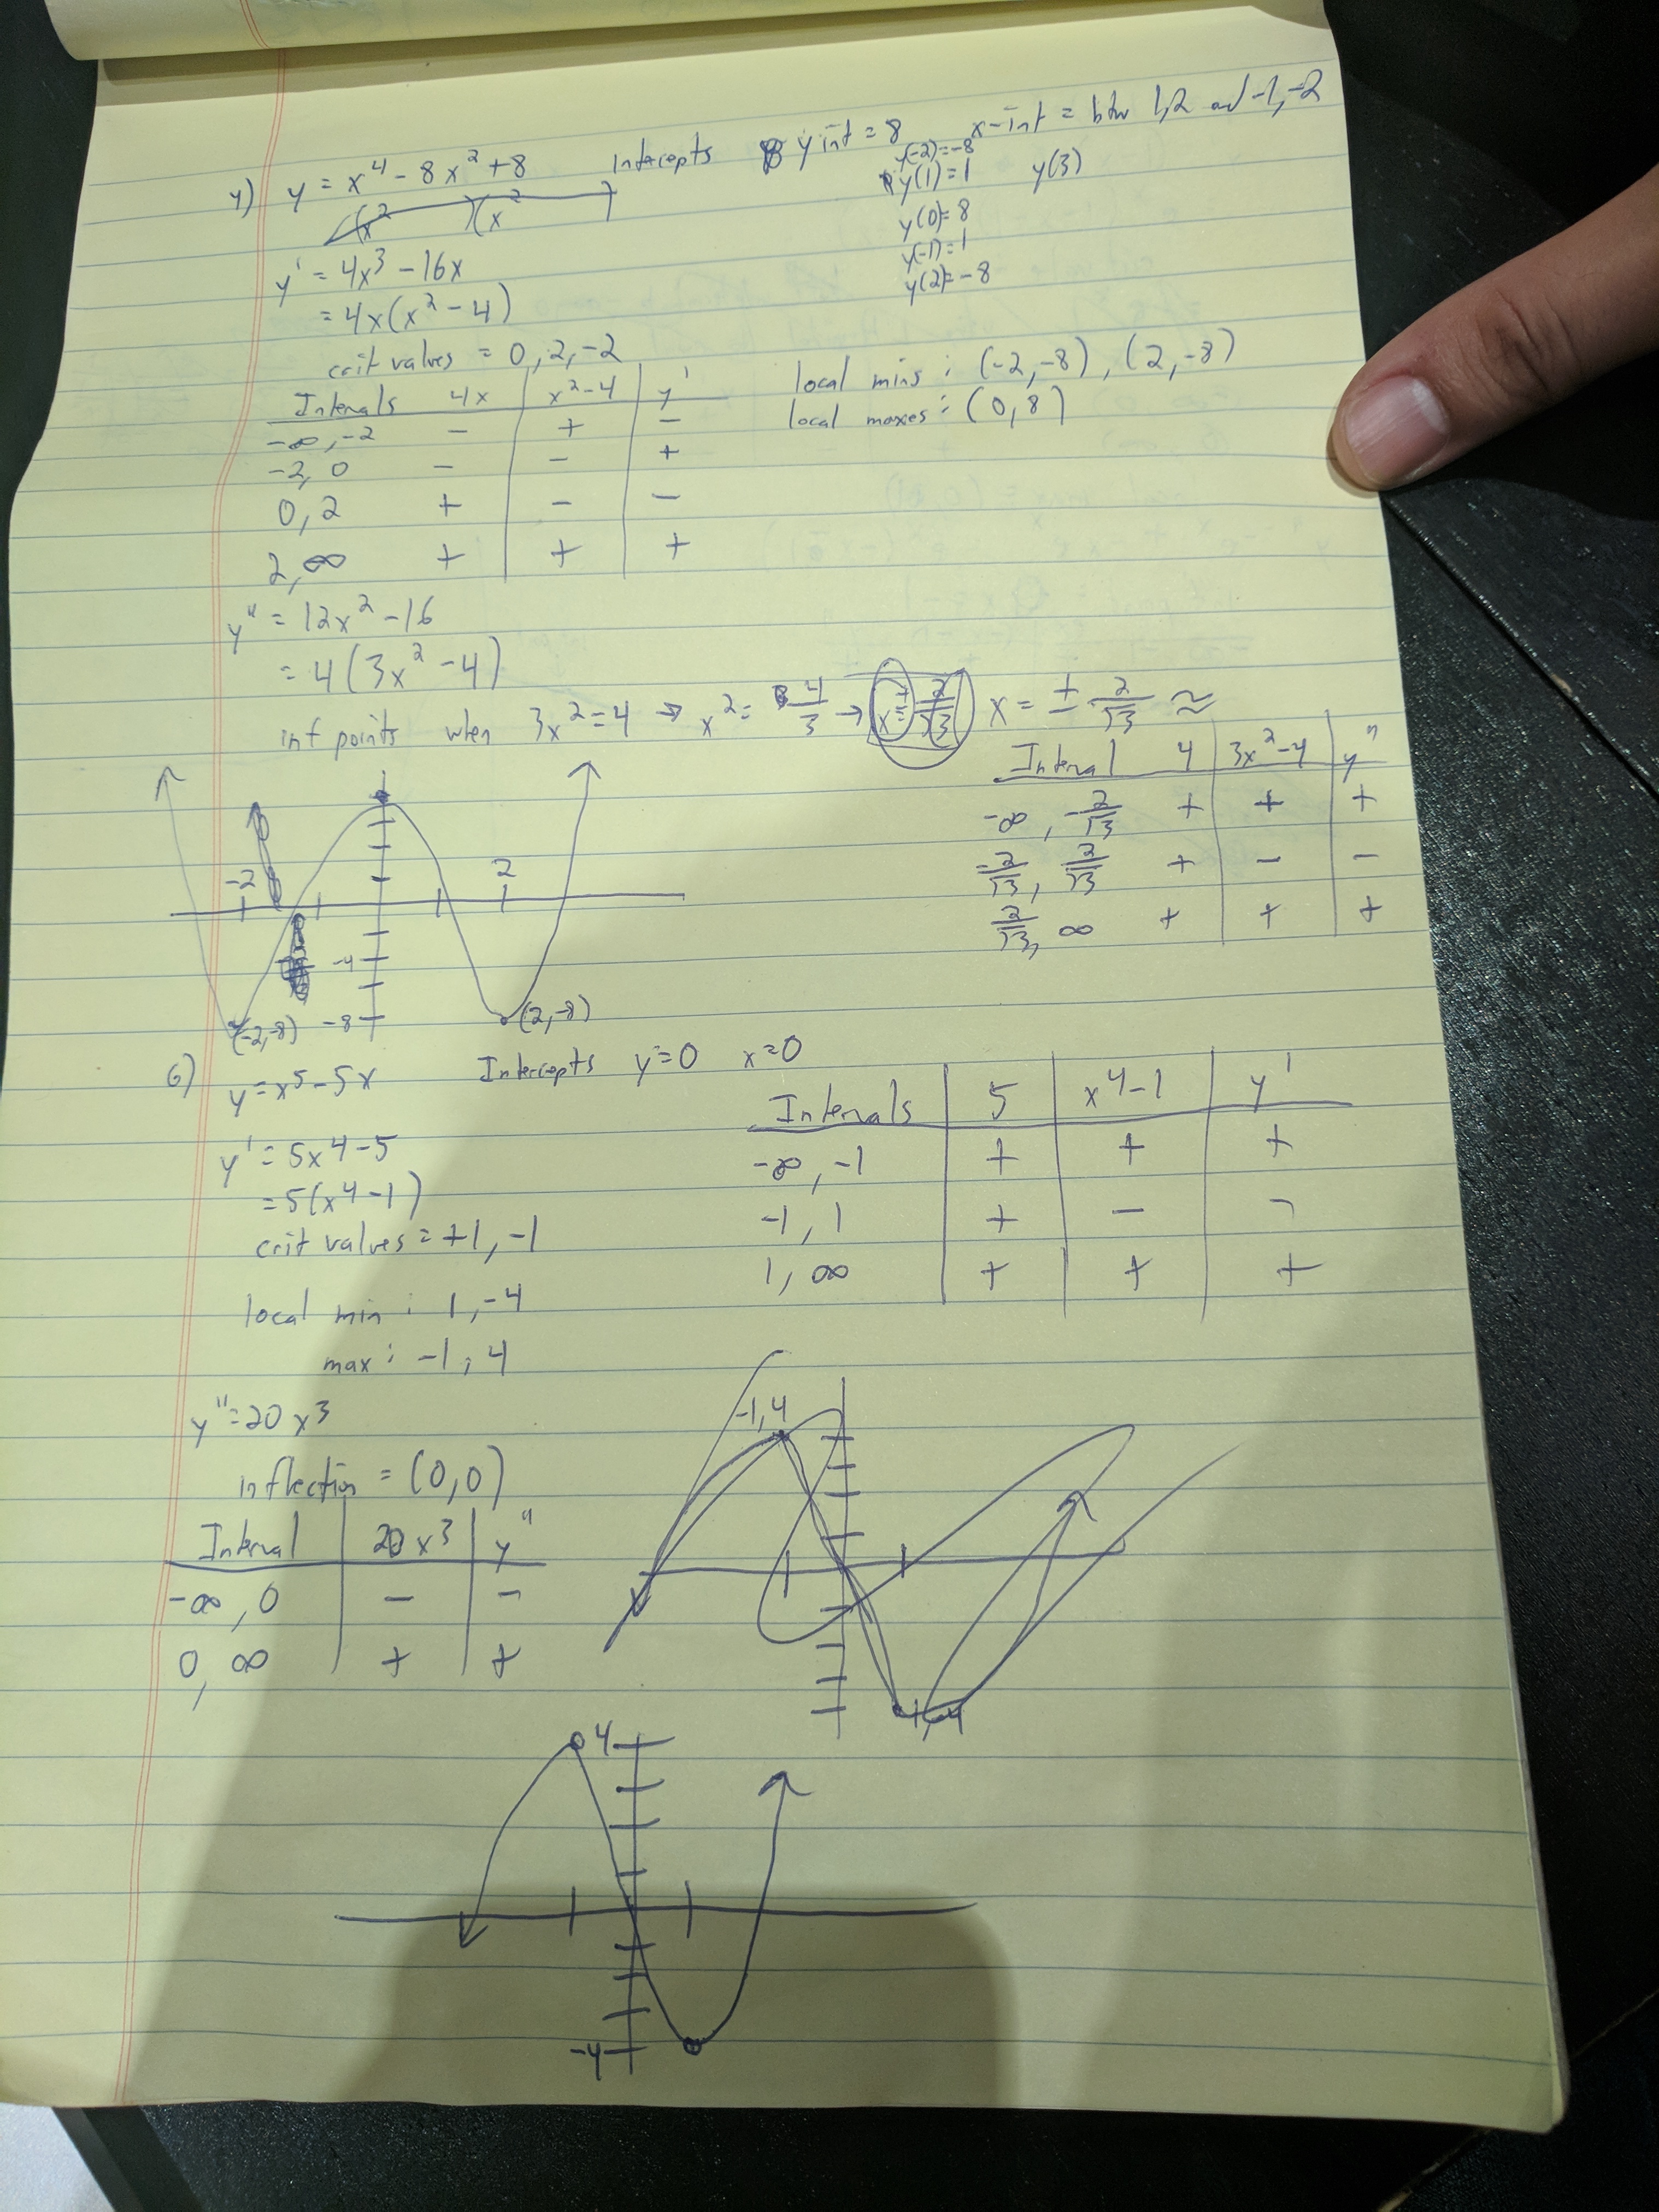 4) y = x⁴ - 8x² + 8 Intercepts y int = 8 x-int = btw 1,2 and -1,-2
(x² )(x²
y(-2) = -8
y(1) = 1 y(3)
y(0) = 8
y(-1) = 1
y(2) = -8
y' = 4x³ - 16x
= 4x(x² - 4)
crit values = 0, 2, -2
Intervals 4x x²-4 y'
-∞, -2 - + -
-2, 0 - - +
0, 2 + - -
2, ∞ + + +
local mins: (-2, -8), (2, -8)
local maxes: (0, 8)
y" = 12x² - 16
= 4(3x² - 4)
inf points when 3x² = 4 → x² = 4/3 → x = ± 2/√3 x = ± 2/√3 ≈
Interval 4 3x²-4 y"
-∞, -2/√3 + + +
-2/√3, 2/√3 + - -
2/√3, ∞ + + +
-2 2
-4
(-2,-8) -8 (2,-8)
6) y = x⁵ - 5x Intercepts y=0 x=0
y' = 5x⁴ - 5
= 5(x⁴ - 1)
crit values = +1, -1
Intervals 5 x⁴-1 y'
-∞, -1 + + +
-1, 1 + - -
1, ∞ + + +
local min: 1, -4
max: -1, 4
y" = 20x³
inflection = (0,0)
Interval 20x³ y"
-∞, 0 - -
0, ∞ + +
-1,4
4
-4